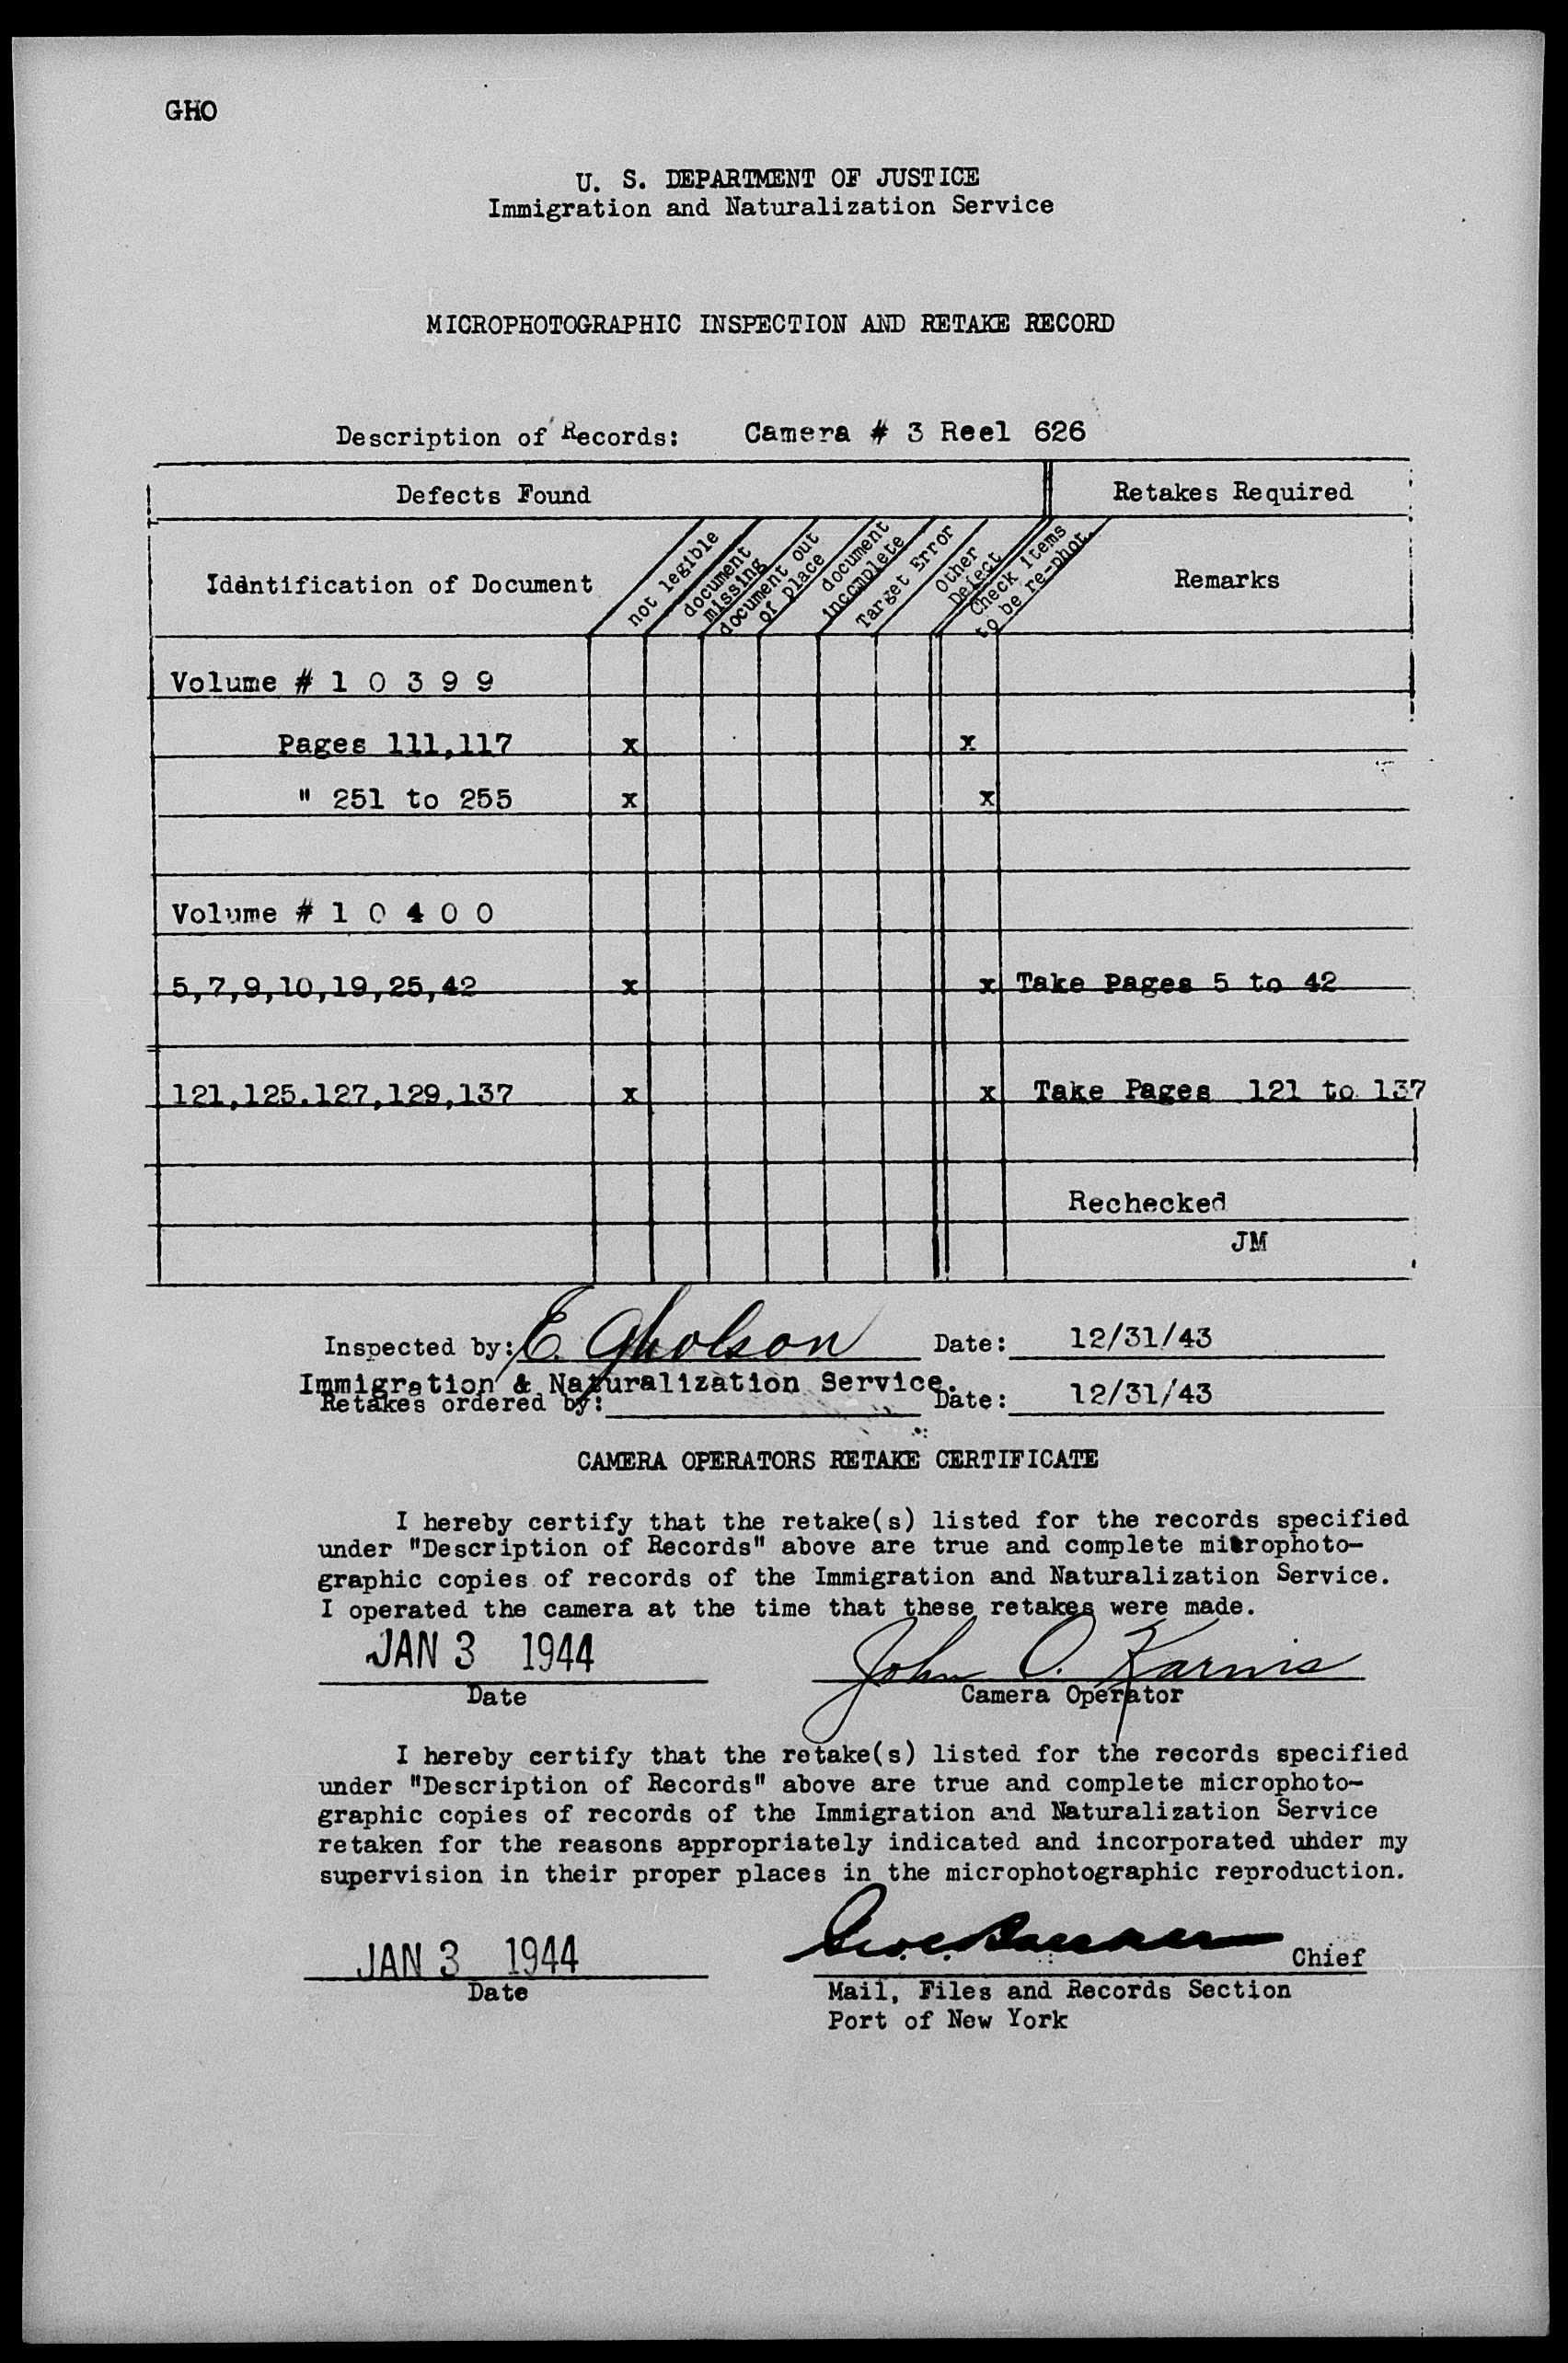 GHO
U. S. DEPARTMENT OF JUSTICE
Immigration and Naturalization Service
MICROPHOTOGRAPHIC INSPECTION AND RETAKE RECORD
Description of Records: Camera # 3 Reel 626
Defects Found Retakes Required
Identification of Document not legible document missing document out of place document incomplete Target Error Other Defect Check Items to be re-phot. Remarks
Volume # 1 0 3 9 9
Pages 111,117 x x
" 251 to 255 x x
Volume # 1 0 4 0 0
5,7,9,10,19,25,42 x x Take Pages 5 to 42
121,125.127,129,137 x x Take Pages 121 to 137
Rechecked
JM
Inspected by: E. Gholson Date: 12/31/43
Immigration & Naturalization Service.
Retakes ordered by: Date: 12/31/43
CAMERA OPERATORS RETAKE CERTIFICATE
I hereby certify that the retake(s) listed for the records specified
under "Description of Records" above are true and complete microphoto-
graphic copies of records of the Immigration and Naturalization Service.
I operated the camera at the time that these retakes were made.
JAN 3 1944 John O. Karnis
Date Camera Operator
I hereby certify that the retake(s) listed for the records specified
under "Description of Records" above are true and complete microphoto-
graphic copies of records of the Immigration and Naturalization Service
retaken for the reasons appropriately indicated and incorporated under my
supervision in their proper places in the microphotographic reproduction.
JAN 3 1944 Chief
Date Mail, Files and Records Section
Port of New York